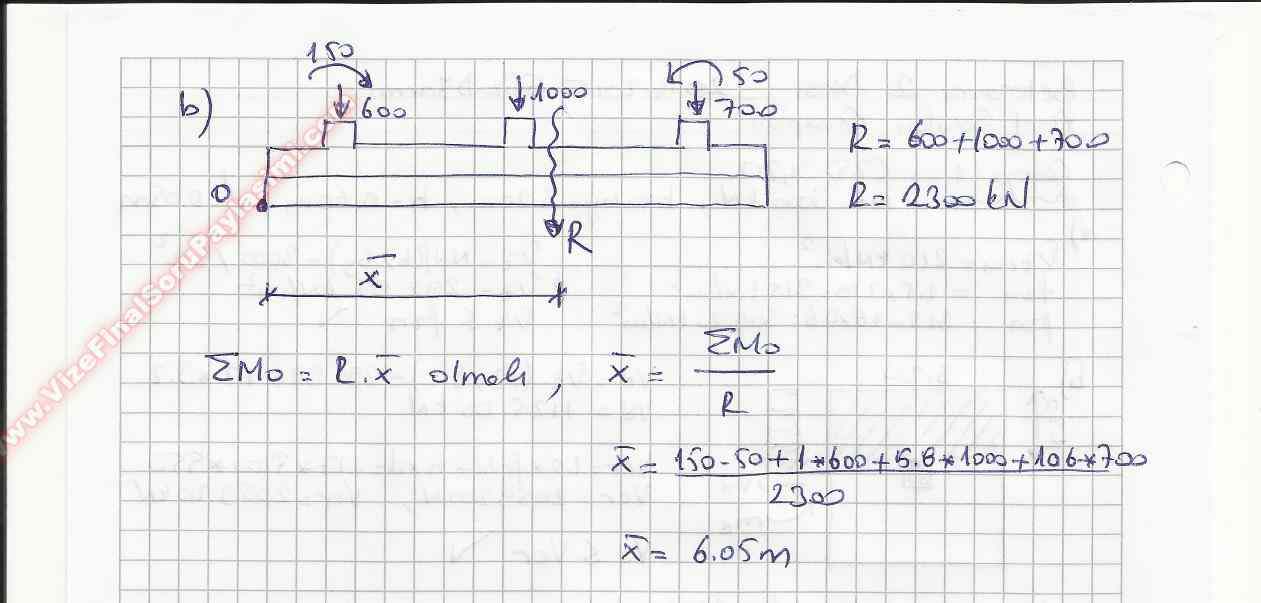 150
50
b)
600
1000
700
R = 600+1000+700
O
R = 2300 kN
R
x̄
ΣMo = R.x̄ olmalı , x̄ = ΣMo / R
x̄ = 150-50+1*600+5.8*1000+10.6*700 / 2300
x̄ = 6.05m
www.VizeFinalSoruPaylasimi.com